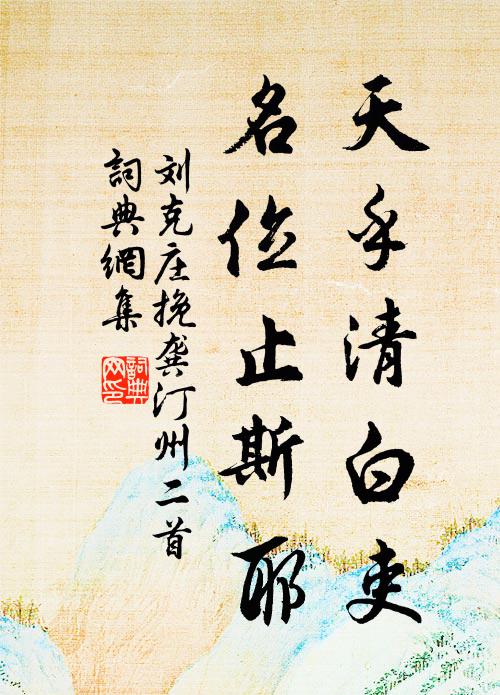 天乎清白吏
名位止斯耶
刘克庄挽龚汀州二首
詞典網集
詞典网印